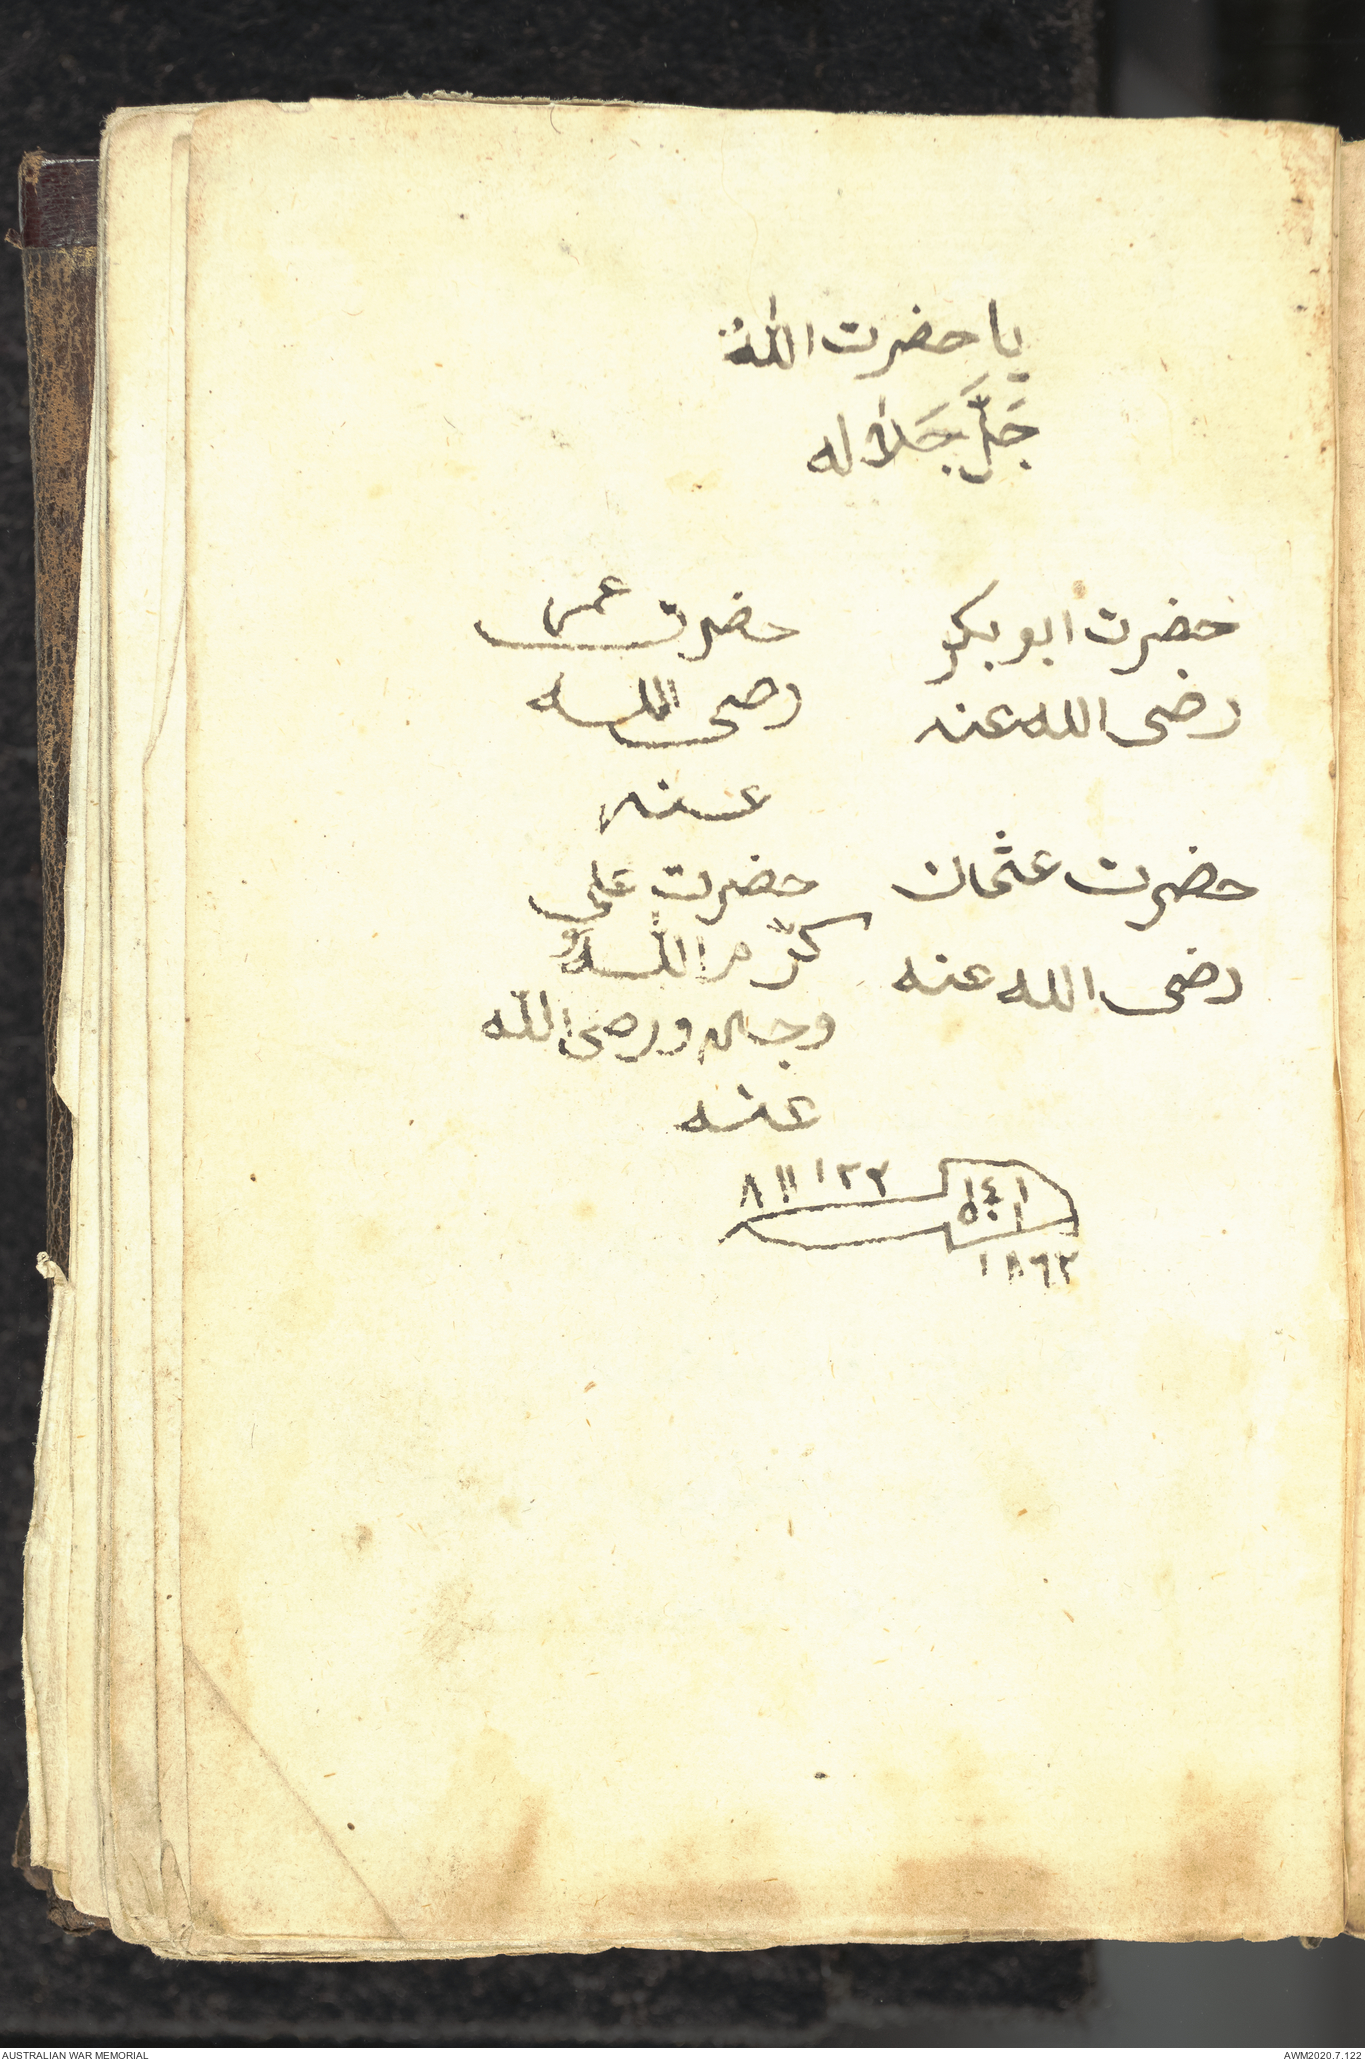 يا حضرت اللهُ
جَلَّ جَلَا له
حضرت ابو بكر
رضى الله عنه
حضرت عمر
رضى الله
عنه
حضرت عثمان
رضى الله عنه
حضرت على
كرّم اللهُ
وجهه ورضى الله
عنه
١٢٣
١٤١
٥٠١
١٨٦٢
AUSTRALIAN WAR MEMORIAL
AWM2020.7.122